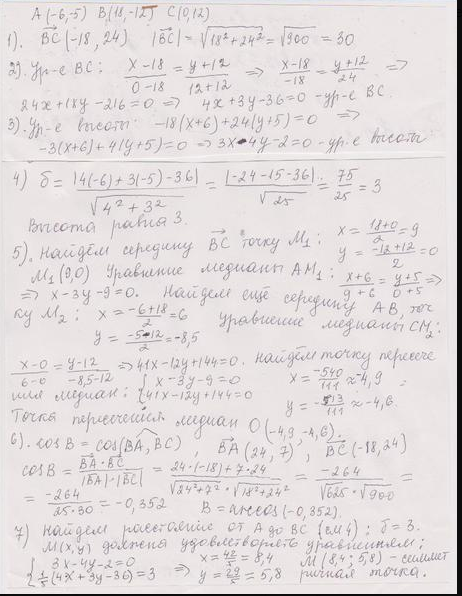 A(-6,-5) B(18,-12) C(0,12)
1). BC(-18,24) |BC|=√18²+24² = √900 = 30
2). Ур-е BC: x-18/0-18 = y+12/12+12 => x-18/-18 = y+12/24 =>
24x+18y-216=0 => 4x+3y-36=0 - ур-е BC
3). Ур-е высоты -18(x+6)+24(y+5)=0 =>
-3(x+6)+4(y+5)=0 => 3x-4y-2=0 - ур-е высоты
4) δ = |4(-6)+3(-5)-36|/√4²+3² = |-24-15-36|/√25 = 75/25 = 3
Высота равна 3.
5). Найдём середину BC точку M₁: x = 18+0/2 = 9
y = -12+12/2 = 0
M₁(9,0) Уравнение медианы AM₁: x+6/9+6 = y+5/0+5 =>
=> x-3y-9=0. Найдем ещё середину AB, точ
ку M₂: x = -6+18/2 = 6 Уравнение медианы CM₂:
y = -5-12/2 = -8,5
x-0/6-0 = y-12/-8,5-12 => 41x-12y+144=0. Найдём точку пересече
ния медиан: { x-3y-9=0 x = -540/111 ≈ -4,9
41x-12y+144=0 y = -513/111 ≈ -4,6.
Точка пересечения медиан O(-4,9,-4,6).
6). cosB = cos(BA, BC) BA(24,7), BC(-18,24)
cosB = BA·BC/|BA|·|BC| = 24·(-18)+7·24/√24²+7²·√18²+24² = -264/√625·√900 =
= -264/25·30 = -0,352 B = arccos(-0,352).
7) Найдём расстояние от A до BC (см 4); δ=3.
M(x,y) должна удовлетворять уравнениям;
{ 3x-4y-2=0 => x = 42/5 = 8,4 M(8,4; 5,8) - симмет
1/5(4x+3y-36)=3 => y = 29/5 = 5,8 ричная точка.